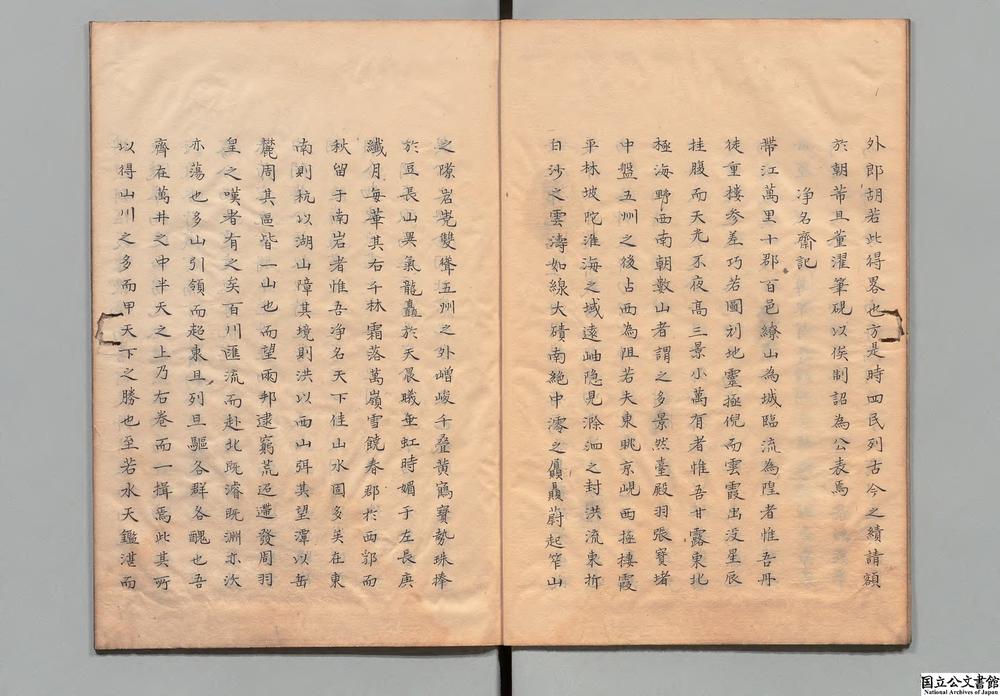 外郎胡若此得畧也方是時四民列古今之績請額
於朝芾且董濯筆硯以俟制詔為公表焉
淨名齋記
帶江萬里十郡百邑繚山為城臨流為隍者惟吾丹
徒重樓參差巧若圖刻地靈極倪而雲霞出沒星辰
挂腹而天光不夜髙三景小萬有者惟吾甘露東北
極海野西南朝數山者謂之多景然臺殿羽張寳堵
中盤五州之後占西為阻若夫東眺京峴西極棲霞
平林坡陀淮海之域遠岫隐見滁泗之封洪流東折
白沙之雲濤如線大磧南絶中濡之贔屭蔚起笮山
之隙岩嶤雙聳五州之外嶒峻千叠黃鶴寳勢珠捧
於豆長山異氣龍矗於天晨曦垂虹時媚于左長庚
纖月每華其右千林霜落萬嶺雪饒春郡扵西郭而
秋留于南岩者惟吾淨名天下佳山水固多矣在東
南則杭以湖山障其境則洪以西山弭其望潭以岳
麓周其區皆一山也而望雨邦逮窮荒迢遭發周羽
皇之嘆者有之矣百川匯流而赴北既濬既淵亦次
亦蕩也多山引領而趍東且列旦驅各群各醜也吾
齊在萬井之中半天之上乃右卷而一揖焉此其所
以得山川之多而甲天下之勝也至若水天鑑湛而
国立公文書館
National Archives of Japan